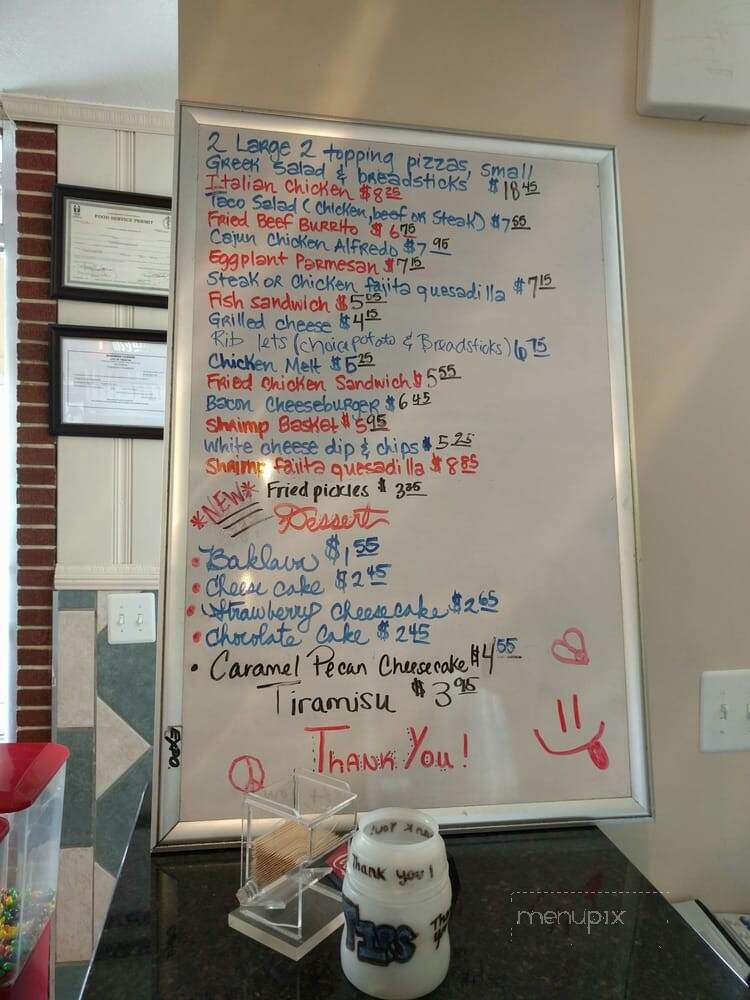 FOOD SERVICE PERMIT
2 Large 2 topping pizzas, small
Greek Salad & breadsticks $18 45
Italian Chicken $8 25
Taco Salad (Chicken, beef or Steak) $7 65
Fried Beef Burrito $6 75
Cajun Chicken Alfredo $7 95
Eggplant Parmesan $7 15
Steak or Chicken fajita quesadilla $7 15
Fish sandwich $5 05
Grilled cheese $4 15
Rib lets (choice potato & Breadsticks) 6 75
Chicken Melt $5 25
Fried Chicken Sandwich $5 55
Bacon Cheeseburger $6 45
Shrimp Basket $5 95
White cheese dip & chips $5 25
Shrimp fajita quesadilla $8 85
Fried pickles $3 35
*NEW*
Dessert
• Baklava $1 55
• Cheese cake $2 45
• Strawberry Cheesecake $2 65
• Chocolate Cake $2 45
• Caramel Pecan Cheesecake $4 55
Tiramisu $3 95
EXPO.
Thank You!
Thank you!
TIPS
menupix